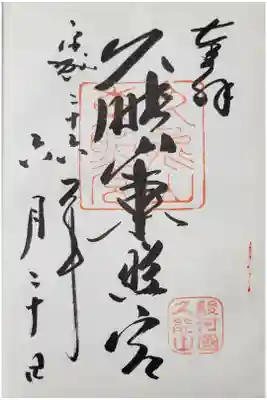 奉拝
久能山東照宮
駿河國
久能山
平成二十六年
六月二十日